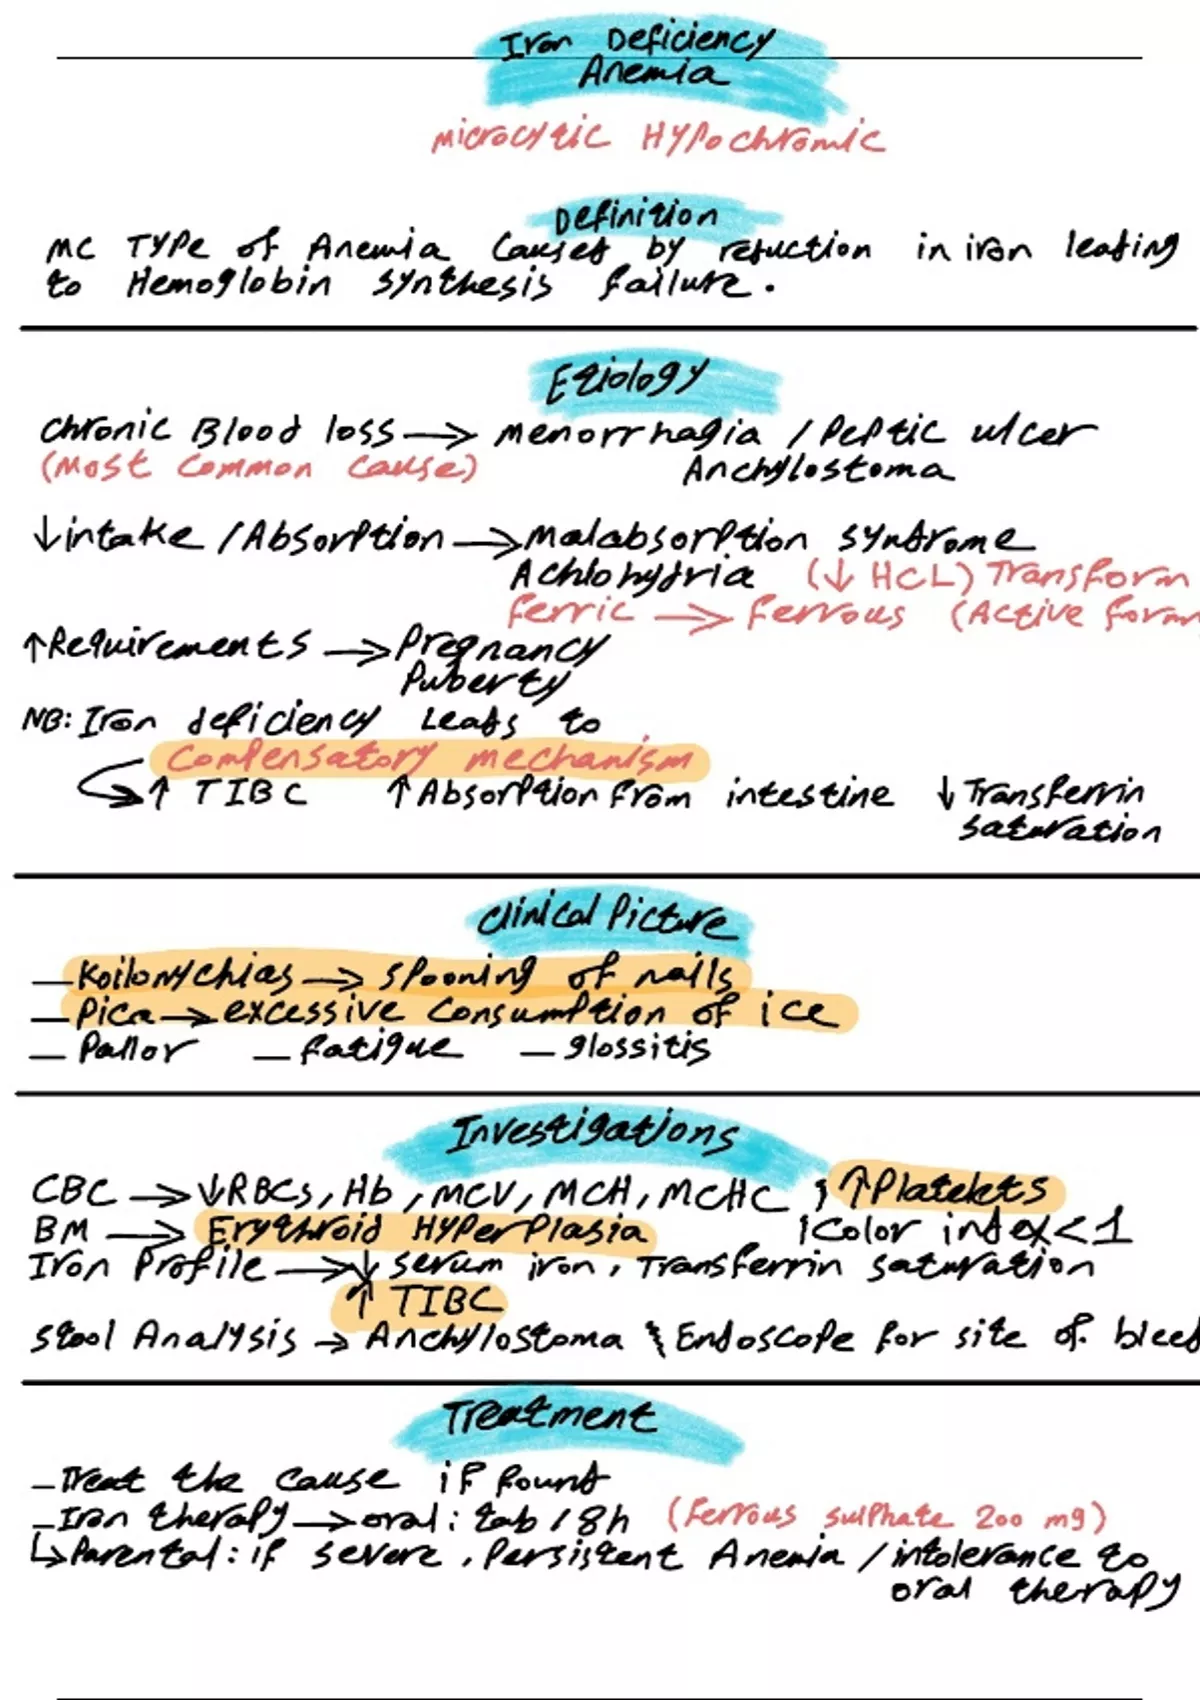 Iron Deficiency
Anemia
Microcytic Hypochromic
Definition
MC Type of Anemia Caused by reduction in iron leading
to Hemoglobin synthesis failure.
Etiology
Chronic Blood loss → Menorrhagia / Peptic ulcer
(Most Common Cause) Anchylostoma
↓intake / Absorption → Malabsorption syndrome
Achlohydria (↓ HCL) Transform
Ferric → Ferrous (Active form
↑Requirements → Pregnancy
Puberty
NB: Iron deficiency Leads to
Compensatory mechanism
↑ TIBC ↑ Absorption from intestine ↓ Transferrin
saturation
Clinical Picture
— Koilonychias → spooning of nails
— Pica → excessive Consumption of ice
— Pallor — fatigue — glossitis
Investigations
CBC → ↓RBCs, Hb, MCV, MCH, MCHC , ↑Platelets
BM → Erythroid Hyperplasia , Color index < 1
Iron Profile → ↓ serum iron, Transferrin saturation
↑ TIBC
Stool Analysis → Anchylostoma Endoscope for site of bleed
Treatment
— Treat the cause if found
— Iron therapy → oral: tab / 8h (Ferrous sulphate 200 mg)
↳ Parental: if severe, Persistent Anemia / intolerance to
oral therapy